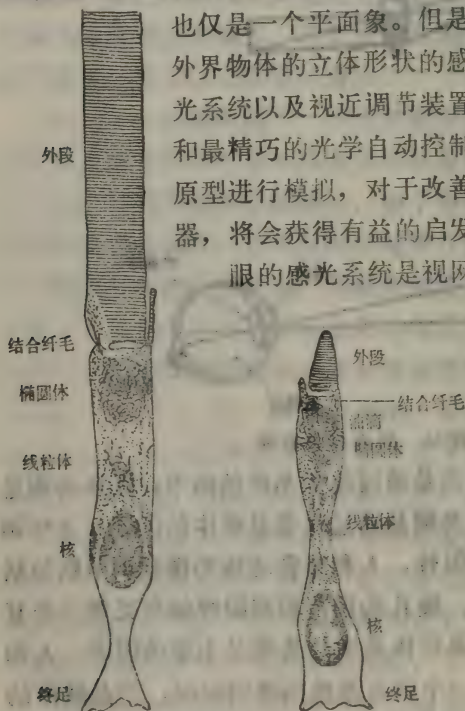 也仅是一个平面象。但是
外界物体的立体形状的感
光系统以及视近调节装置
和最精巧的光学自动控制
原型进行模拟，对于改善
器，将会获得有益的启发
眼的感光系统是视网
外段
结合纤毛
椭圆体
线粒体
核
终足
外段
结合纤毛
油滴
椭圆体
线粒体
核
终足